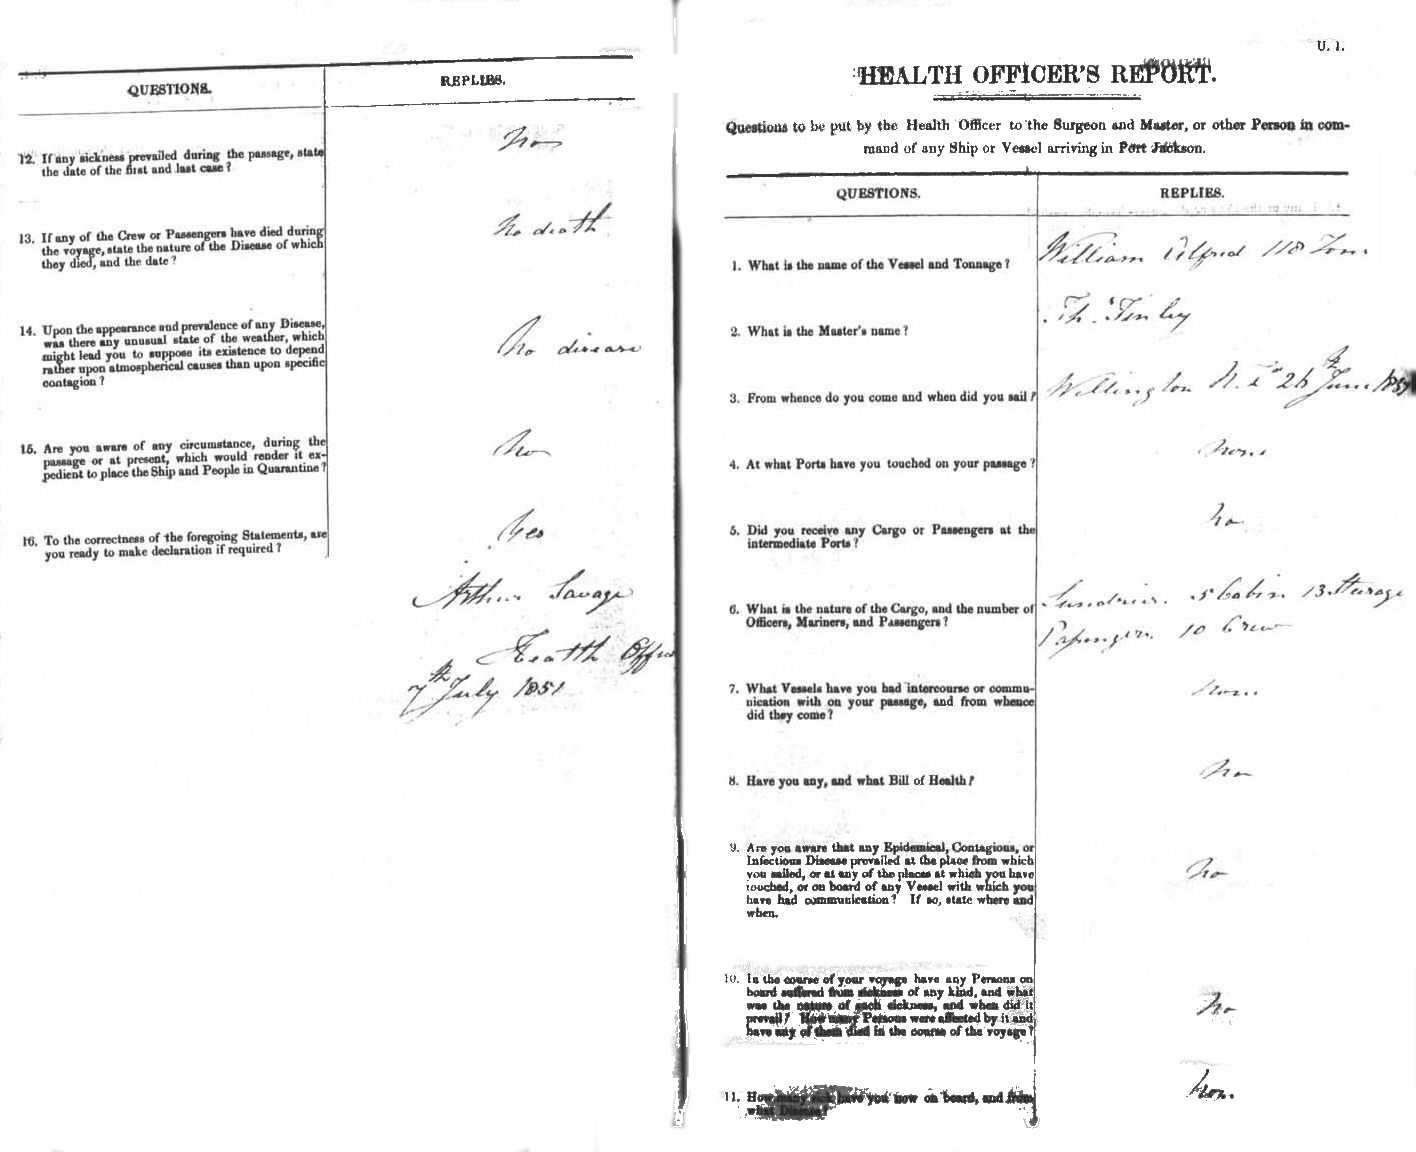 QUESTIONS.
REPLIES.
12. If any sickness prevailed during the passage, state
the date of the first and last case?
No
13. If any of the Crew or Passengers have died during
the voyage, state the nature of the Disease of which
they died, and the date?
No death
14. Upon the appearance and prevalence of any Disease,
was there any unusual state of the weather, which
might lead you to suppose its existence to depend
rather upon atmospherical causes than upon specific
contagion?
No disease
15. Are you aware of any circumstance, during the
passage or at present, which would render it ex-
pedient to place the Ship and People in Quarantine?
No
16. To the correctness of the foregoing Statements, are
you ready to make declaration if required?
Yes
Arthur Savage
Health Officer
7th July 1851
U. 1.
HEALTH OFFICER'S REPORT.
Questions to be put by the Health Officer to the Surgeon and Master, or other Person in com-
mand of any Ship or Vessel arriving in Port Jackson.
QUESTIONS.
REPLIES.
1. What is the name of the Vessel and Tonnage?
William Alfred 118 Tons
2. What is the Master's name?
Th. Tinley
3. From whence do you come and when did you sail?
Wellington N. Z. 26th June 1851
4. At what Ports have you touched on your passage?
None
5. Did you receive any Cargo or Passengers at the
intermediate Ports?
No
6. What is the nature of the Cargo, and the number of
Officers, Mariners, and Passengers?
Sundries. 5 Cabin 13 Sturage
Passengers. 10 Crew
7. What Vessels have you had intercourse or commu-
nication with on your passage, and from whence
did they come?
None
8. Have you any, and what Bill of Health?
No
9. Are you aware that any Epidemical, Contagious, or
Infectious Disease prevailed at the place from which
you sailed, or at any of the places at which you have
touched, or on board of any Vessel with which you
have had communication? If so, state where and
when.
No
10. In the course of your voyage have any Persons on
board suffered from sickness of any kind, and what
was the nature of such sickness, and when did it
prevail? How many Persons were affected by it and
have any of them died in the course of the voyage?
No
11. How many sick have you now on board, and from
what Disease?
None